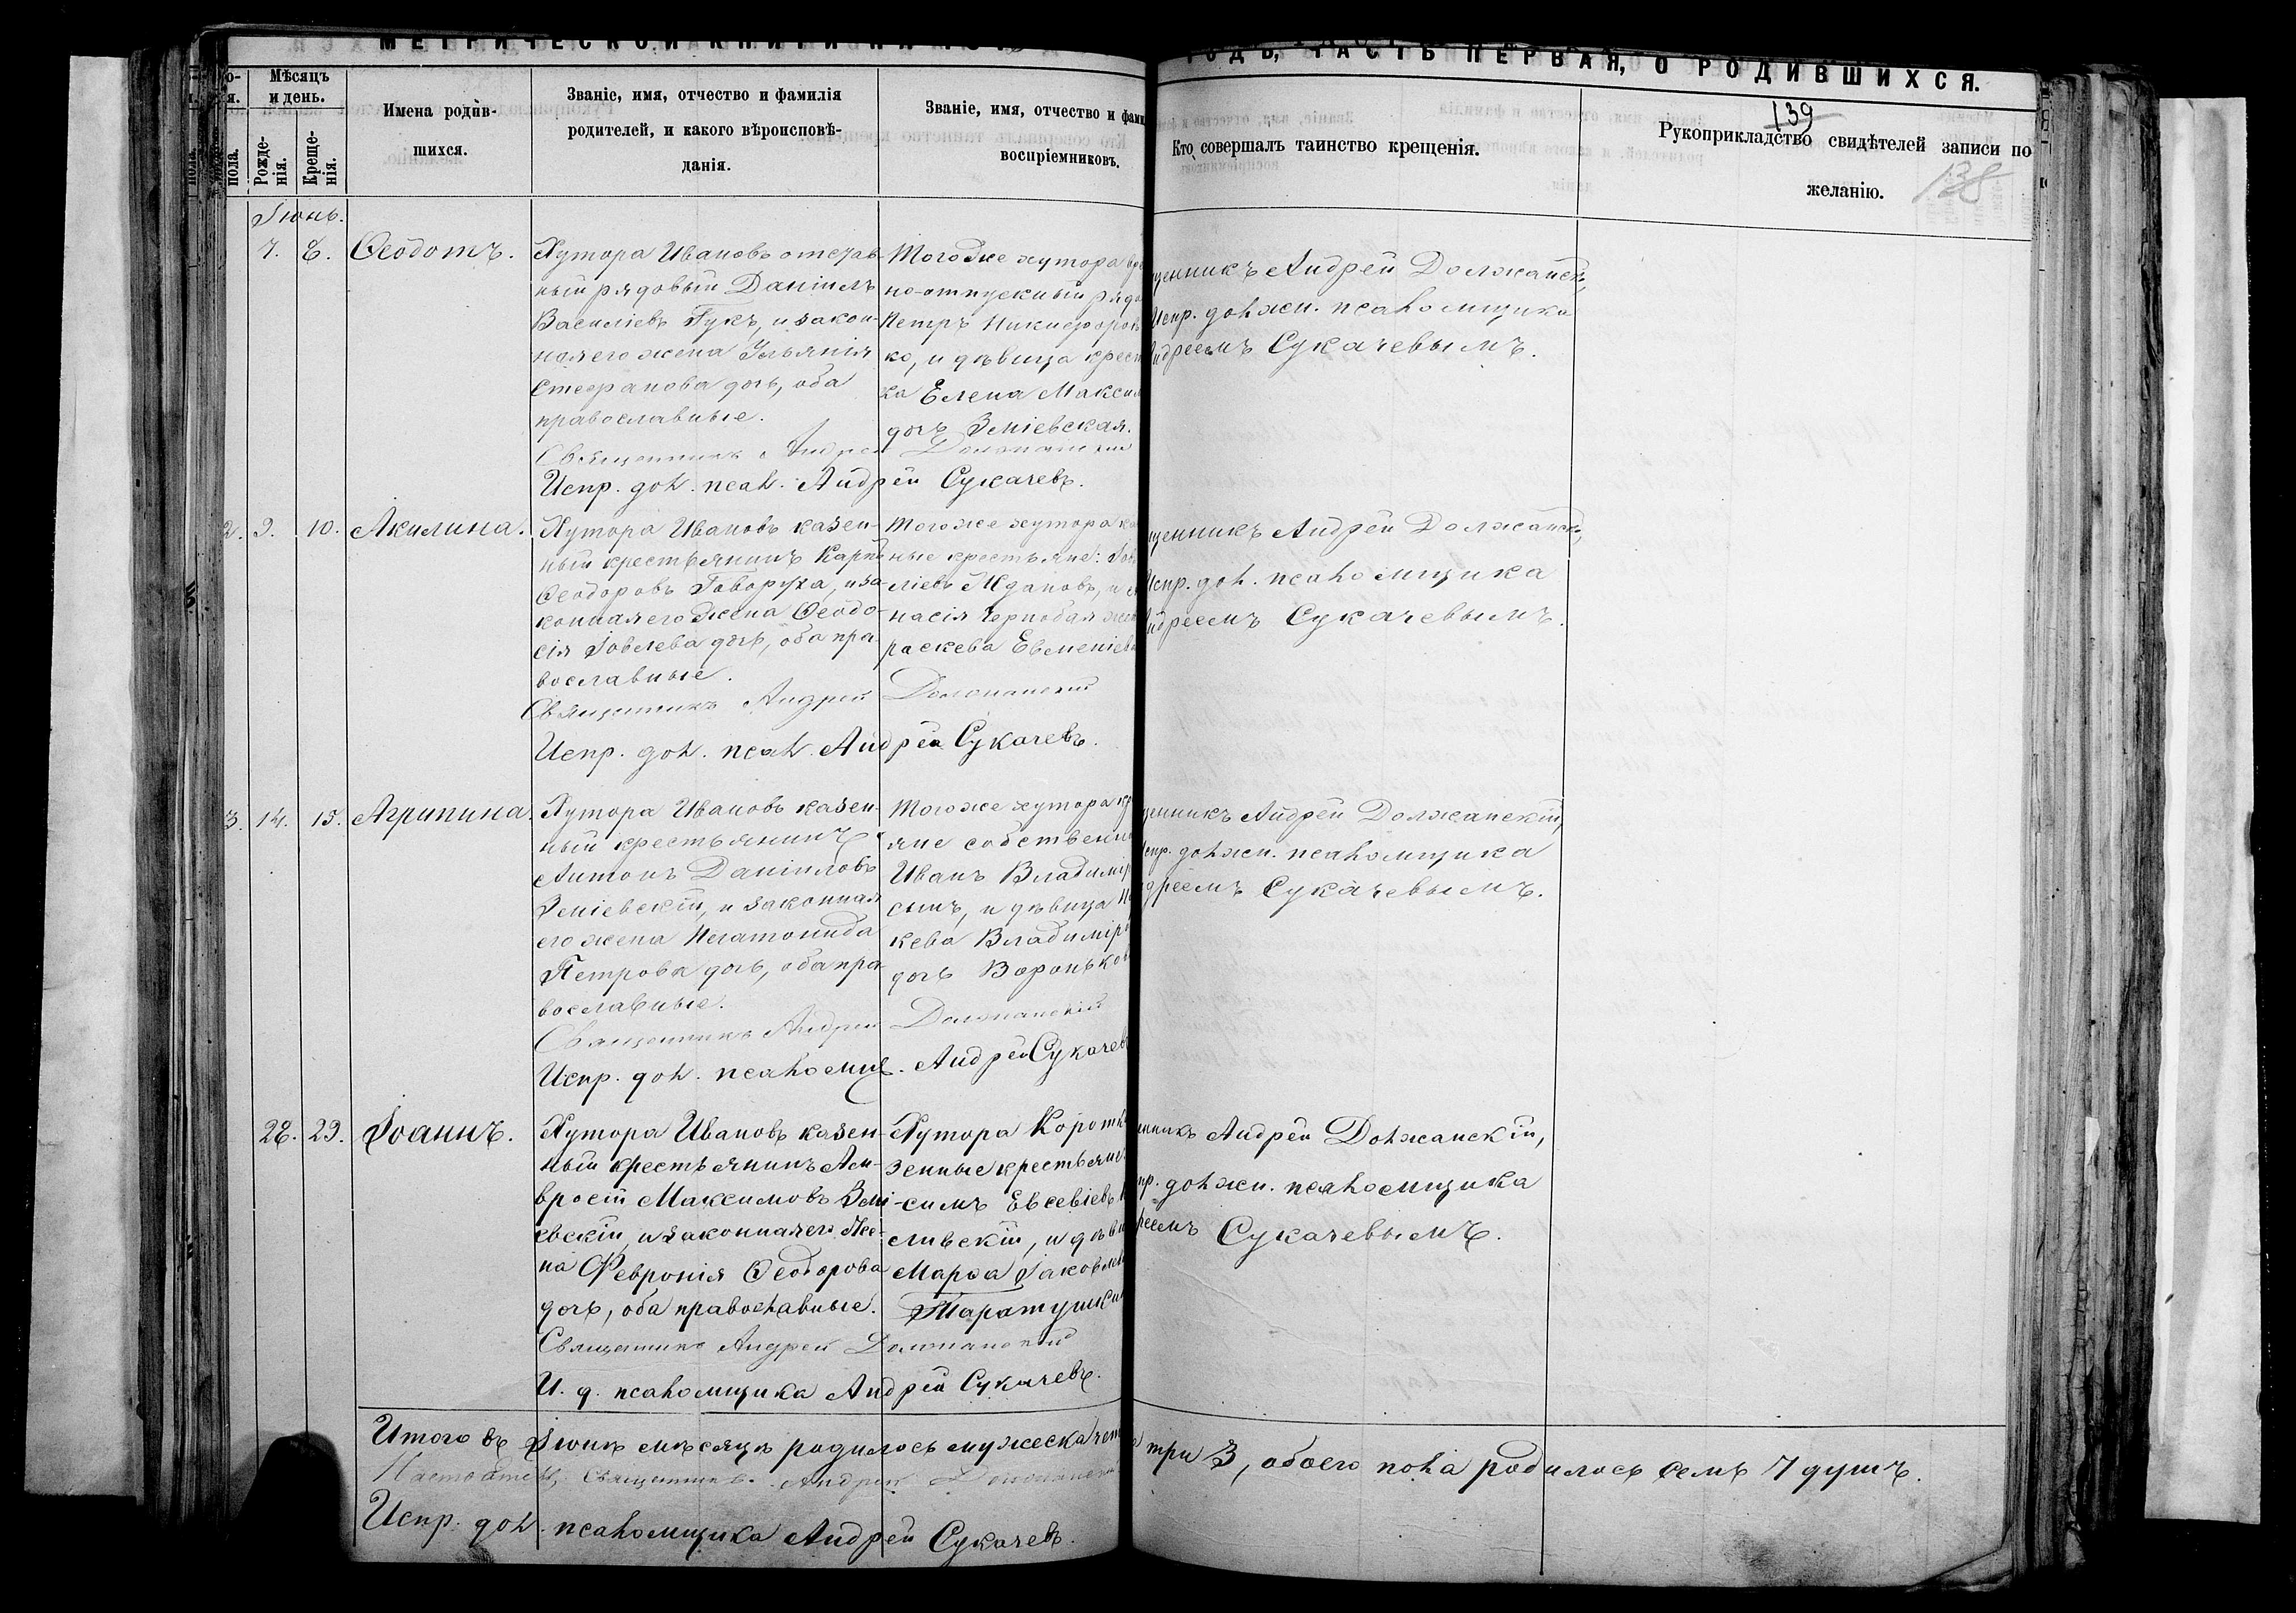 МЕТРИЧЕСКОЙ КНИГИ НА
ГОДЪ, ЧАСТЬ ПЕРВАЯ, О РОДИВШИХСЯ.
139
138
Мѣсяцъ и день.
Рожде-нія.
Креще-нія.
Имена родив-
шихся.
Званіе, имя, отчество и фамилія
родителей, и какого вѣроисповѣ-
данія.
Званіе, имя, отчество и фами
воспріемниковъ.
Кто совершалъ таинство крещенія.
Рукоприкладство свидѣтелей записи по
желанію.
Іюнь.
7. 8. Ѳеодотъ.
Хутора Ивановъ
ный рядовый Даніилъ
Василіевъ Гукъ, и закон-
ная его жена Ульянія
Стефанова дочь, оба
православные.
Тогоже хутора
но-отпускный рядо
Петръ Никифоровъ
ко, и дѣвица крест
ка Елена Максим
дочь Зміевская.
щенникъ Андрей Должанскі
Испр. должн. псаломщика
Андреемъ Сукачевымъ.
Священникъ Андрей Должанскій
Испр. дол. псал. Андрей Сукачевъ.
2. 9. 10. Акилина.
Хутора Ивановъ казен-
ный крестьянинъ Карпъ
Ѳеодоровъ Говоруха, и за-
конная его жена Ѳеодо-
сія Іовлева дочь, оба пра-
вославные.
Тогоже хутора ка
ные крестьяне: Іов
ліевъ Ждановъ, и
насія Чернобая жен
раскева Евменіева
щенникъ Андрей Должанскі
Испр. дол. псаломщика
Андреемъ Сукачевымъ.
Священникъ Андрей Должанскій
Испр. дол. псал. Андрей Сукачевъ.
3. 14. 15. Агрипина.
Хутора Ивановъ казен-
ный крестьянинъ
Антонъ Даніиловъ
Зміевскій, и законная
его жена
Петрова дочь, оба пра-
вославные.
Тогоже хутора кр
яне собственни
Иванъ Владимір
сынъ, и дѣвица
кева Владимірова
дочь Воронькова
щенникъ Андрей Должанскій,
Испр. должн. псаломщика
дреемъ Сукачевымъ.
Священникъ Андрей Должанскій
Испр. дол. псаломщ. Андрей Сукачевъ
28. 29. Іоаннъ.
Хутора Ивановъ казен-
ный крестьянинъ Ам-
вросій Максимовъ Змі-
евскій, и законная его же-
на Февронія Ѳеодорова
дочь, оба православные.
Хутора Коротк
зенные крестьяне
симъ Евсевіевъ
сливскій, и дѣви
Марѳа Іаковлева
Таратушкина
нникъ Андрей Должанскій,
пр. должн. псаломщика
реемъ Сукачевымъ.
Священникъ Андрей Должанскій
И. д. псаломщика Андрей Сукачевъ.
Итого въ Іюнѣ мѣсяцѣ родилось мужеска чет
три 3, обоего пола родилось семь 7 душъ.
Настоятель, Священникъ Андрей Должанскій
Испр. дол. псаломщика Андрей Сукачевъ.